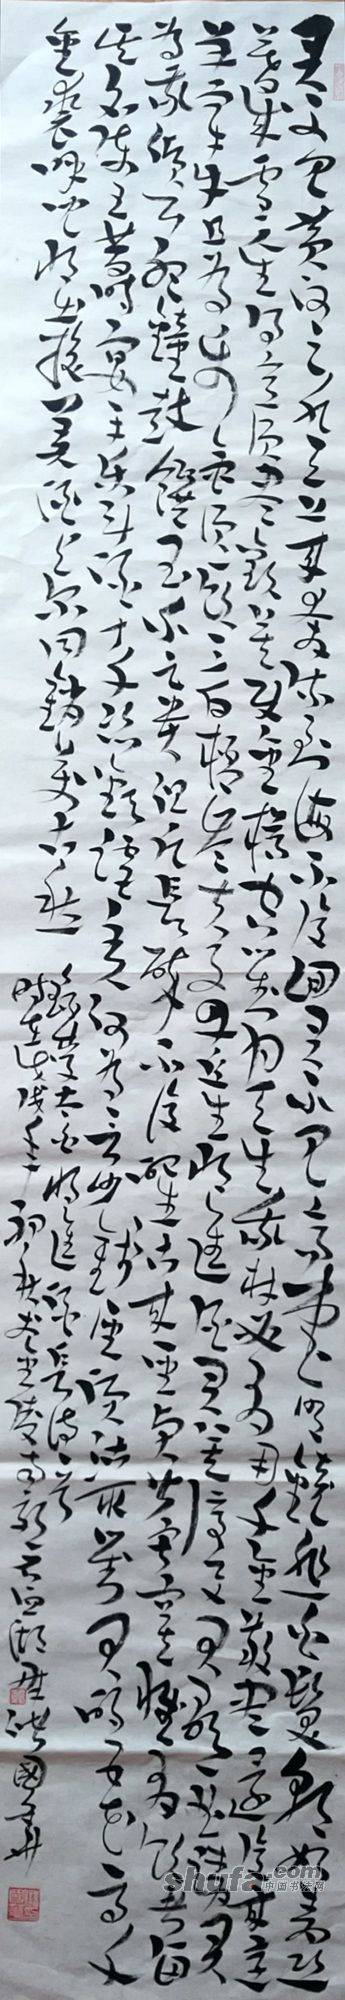 君不见黄河之水天上来奔流到海不复回君不见高堂明镜悲白髮朝如青丝
暮成雪人生得意须尽欢莫使金樽空对月天生我材必有用千金散尽还复来烹
羊宰牛且为乐会须一饮三百杯岑夫子丹丘生将进酒君莫停与君歌一曲请君
为我倾耳听钟鼓馔玉不足贵但愿长醉不复醒古来圣贤皆寂寞惟有饮者留
其名陈王昔时宴平乐斗酒十千恣欢谑主人何为言少钱径须沽取对君酌五花马千
金裘呼儿将出换美酒与尔同销万古愁
录李太白将进酒长诗一首
时在戊戌年初秋于金陵南郊石臼湖畔國华
shufa.com
中国书法网